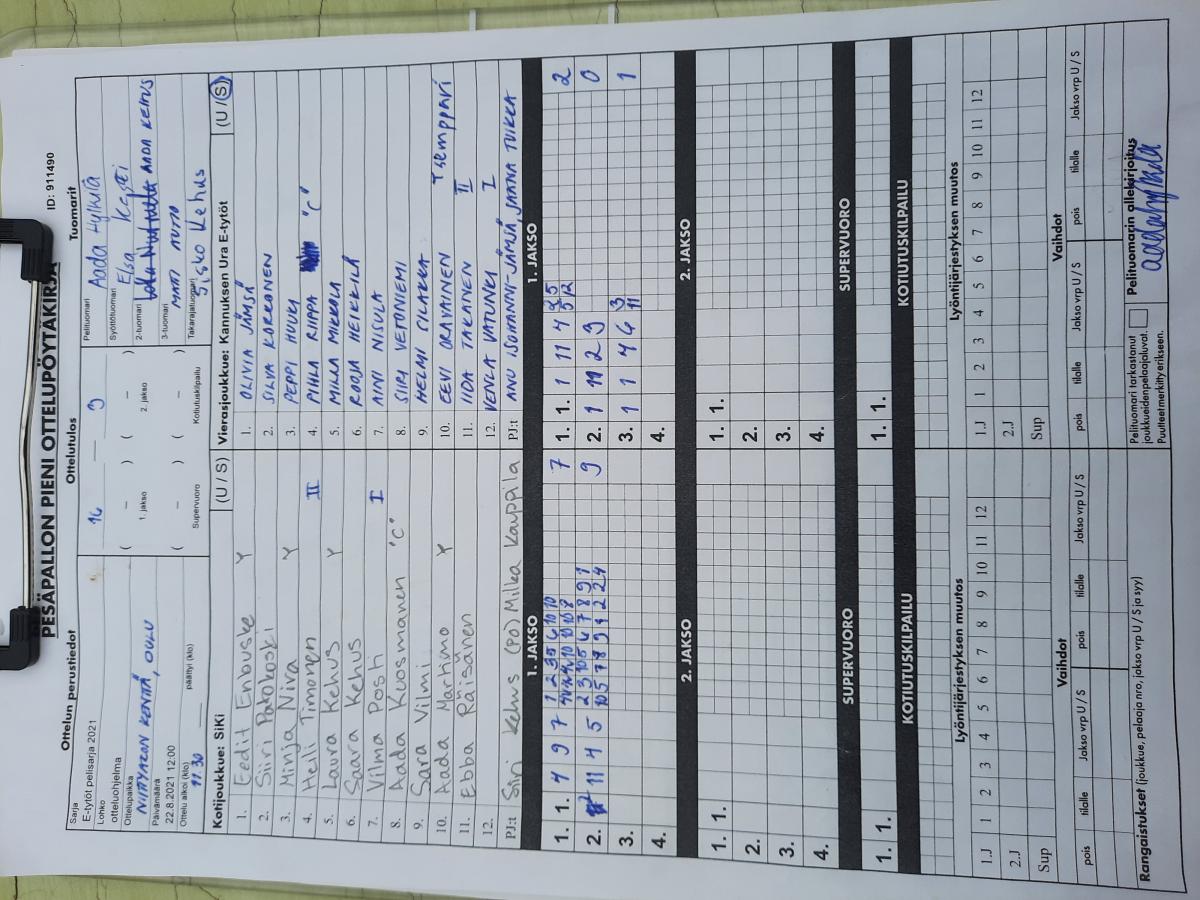 PESÄPALLON PIENI OTTELUPÖYTÄKIRJA
ID: 911490
Ottelun perustiedot
Sarja
E-tytöt pelisarja 2021
Lohko
otteluohjelma
Ottelupaikka
NIITTYARON KENTTÄ, OULU
Päivämäärä
22.8.2021 12:00
Ottelu alkoi (klo)
päättyi (klo)
11.30
Ottelutulos
16 — 3
( – ) ( – )
1. jakso 2. jakso
( – ) ( – )
Supervuoro Kotiutuskilpailu
Tuomarit
Pelituomari
Aada Hylkilä
Syöttötuomari
Elsa
2-tuomari
AADA KEHUS
3-tuomari
MATTI AUTIO
Takarajatuomari
Sisko Kehus
Kotijoukkue: SiKi (U / S)
1. Eedit Enbuske Y
2. Siiri Pakokoski
3. Minja Niva Y
4. Heili Timonen II
5. Laura Kehus Y
6. Saara Kehus
7. Vilma Posti I
8. Aada Kuosmanen "C"
9. Sara Vilmi
10. Aada Martimo Y
11. Ebba Räisänen
12.
PJ:t Siri Kehus (PO) Milka Kauppila
Vierasjoukkue: Kannuksen Ura E-tytöt (U / S)
1. OLIVIA JÄMSÄ
2. SILVA KORKONEN
3. PEPPI HUUKI
4. PIHLA RIIPPA "C"
5. MILLA MIKKOLA
6. ROOSA HEIKKILÄ
7. AINI NISULA
8. SIIRI VETONIEMI
9. HELMI PILAKKA
10. EEVI ORAVAINEN Tsemppari
11. IIDA TAKAINEN II
12. VENLA VATUNKI I
PJ:t ANU ISOHANNI-JÄMSÄ, JAANA TUIKKA
1. JAKSO
1. 1. 4 9 7 7
2. 11 4 5 9
3.
4.
1. JAKSO
1. 1. 1 11 4 2
2. 1 11 2 9 0
3. 1 1 4 6 1
4.
2. JAKSO
1. 1.
2.
3.
4.
2. JAKSO
1. 1.
2.
3.
4.
SUPERVUORO
1. 1.
SUPERVUORO
1. 1.
KOTIUTUSKILPAILU
KOTIUTUSKILPAILU
Lyöntijärjestyksen muutos
1.J 1 2 3 4 5 6 7 8 9 10 11 12
2.J
Sup
Lyöntijärjestyksen muutos
1.J 1 2 3 4 5 6 7 8 9 10 11 12
2.J
Sup
Vaihdot
pois tilalle Jakso vrp U / S pois tilalle Jakso vrp U / S
Vaihdot
pois tilalle Jakso vrp U / S pois tilalle Jakso vrp U / S
Rangaistukset (joukkue, pelaaja nro, jakso vrp U / S ja syy)
Pelituomari tarkastanut
joukkueidenpelaajaluvat.
Puutteet merkitty erikseen.
Pelituomarin allekirjoitus